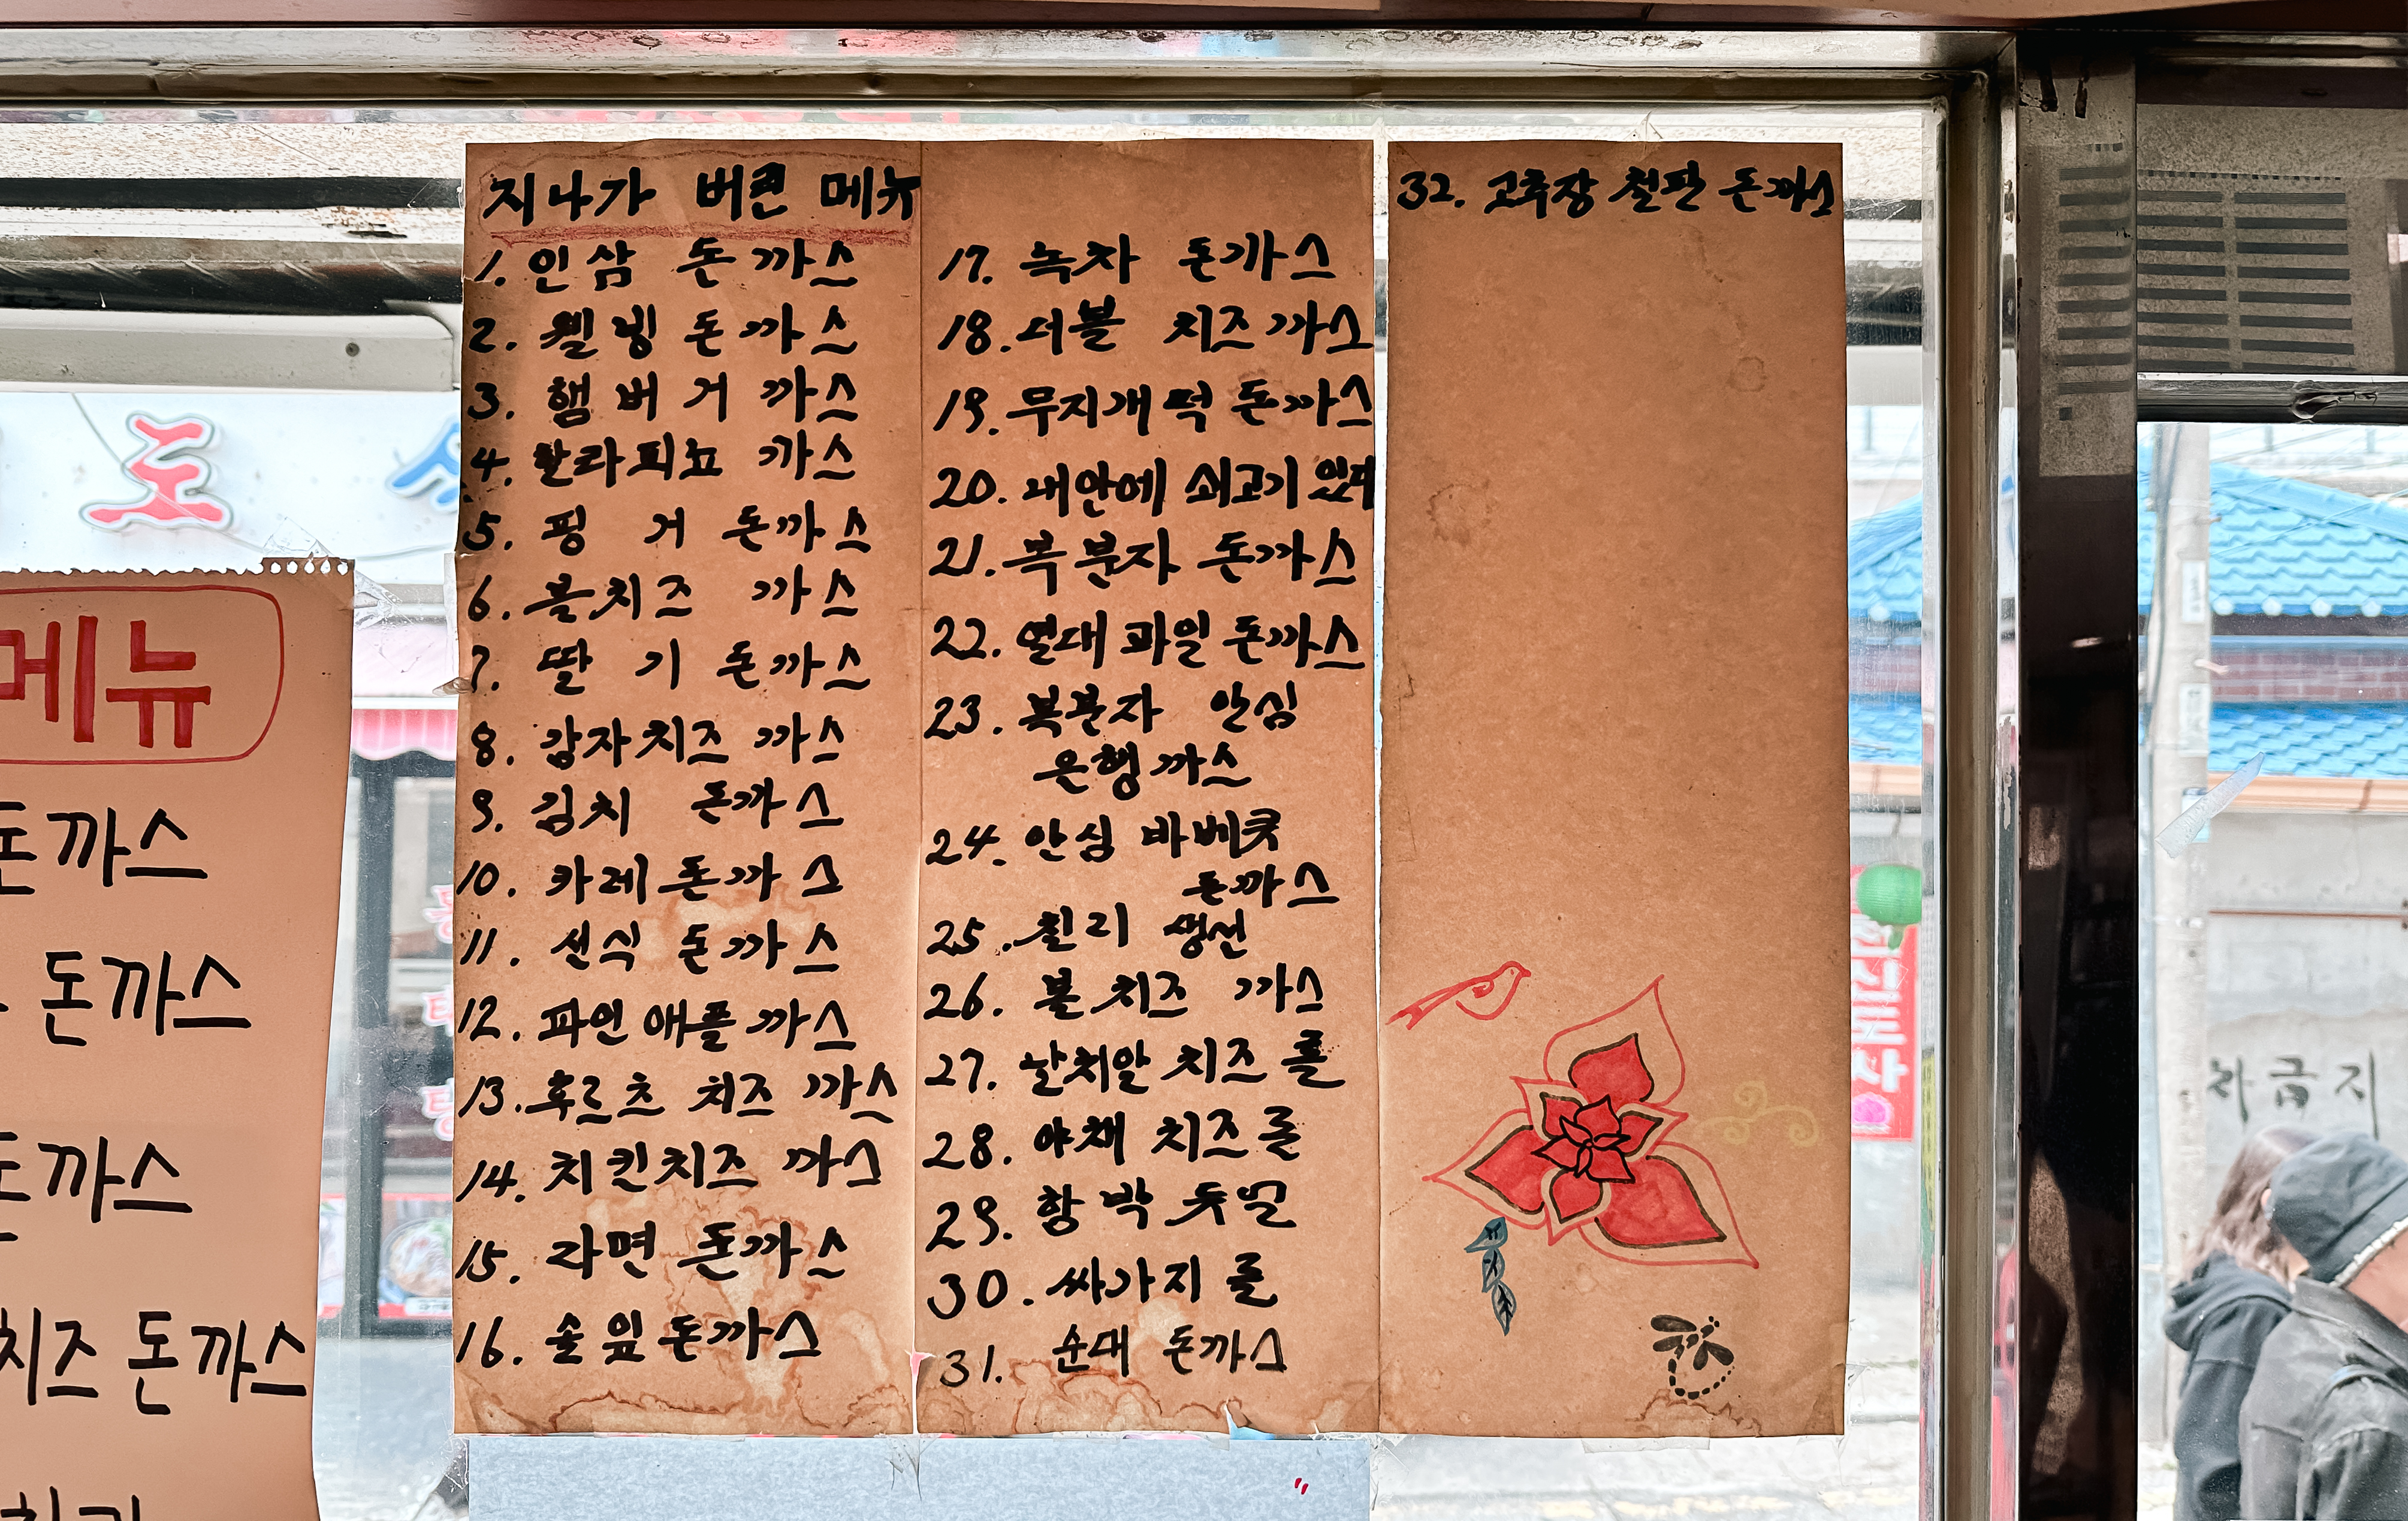 지나가 버린 메뉴
1. 인삼 돈까스
2. 웰빙 돈까스
3. 햄버거 까스
4. 할라피뇨 까스
5. 핑거 돈까스
6. 불치즈 까스
7. 딸기 돈까스
8. 감자치즈 까스
9. 김치 돈까스
10. 카레 돈까스
11. 선식 돈까스
12. 파인애플 까스
13. 후르츠 치즈 까스
14. 치킨치즈 까스
15. 라면 돈까스
16. 솔잎 돈까스
17. 녹차 돈까스
18. 더블 치즈까스
19. 무지개떡 돈까스
20. 내안에 쇠고기 있다
21. 복분자 돈까스
22. 열대과일 돈까스
23. 복분자 안심
은행까스
24. 안심 바베큐
돈까스
25. 칠리 생선
26. 볼 치즈 까스
27. 날치알 치즈 롤
28. 야채 치즈 롤
29. 함박
30. 싸가지 롤
31. 순대 돈까스
32. 고추장 철판 돈까스
메뉴
돈까스
돈까스
돈까스
치즈 돈까스
도
차금지